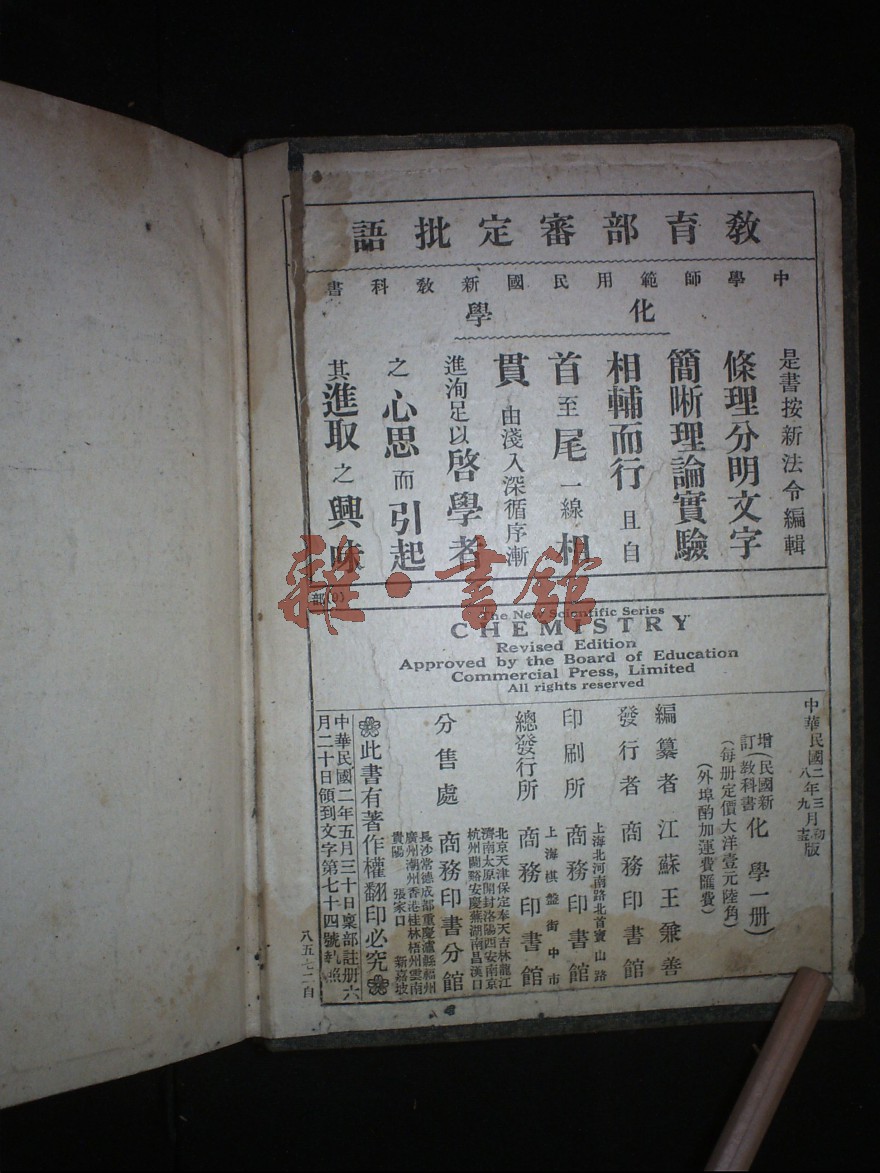 教育部審定批語
中學師範用民國新教科書
化學
是書按新法令編輯
條理分明文字
簡晰理論實驗
相輔而行且自
首至尾一線相
貫由淺入深循序漸
進洵足以啓學者
之心思而引起
其進取之興味
雜·書館
部(0)
The New Scientific Series
CHEMISTRY
Revised Edition
Approved by the Board of Education
Commercial Press, Limited
All rights reserved
中華民國二年三月初版
八年九月
增訂(民國新教科書化學一册)
(每册定價大洋壹元陸角)
(外埠酌加運費匯費)
編纂者 江蘇王兼善
發行者 商務印書館
上海北河南路北首寶山路
印刷所 商務印書館
上海棋盤街中市
總發行所 商務印書館
北京天津保定奉天吉林龍江
濟南太原開封洛陽西安南京
杭州蘭谿安慶蕪湖南昌漢口
分售處 商務印書分館
長沙常德成都重慶瀘縣福州
廣州潮州香港桂林梧州雲南
貴陽 張家口 新嘉坡
此書有著作權翻印必究
中華民國二年五月三十日稟部註册六
月二十日領到文字第七十四號執照
八五七二自